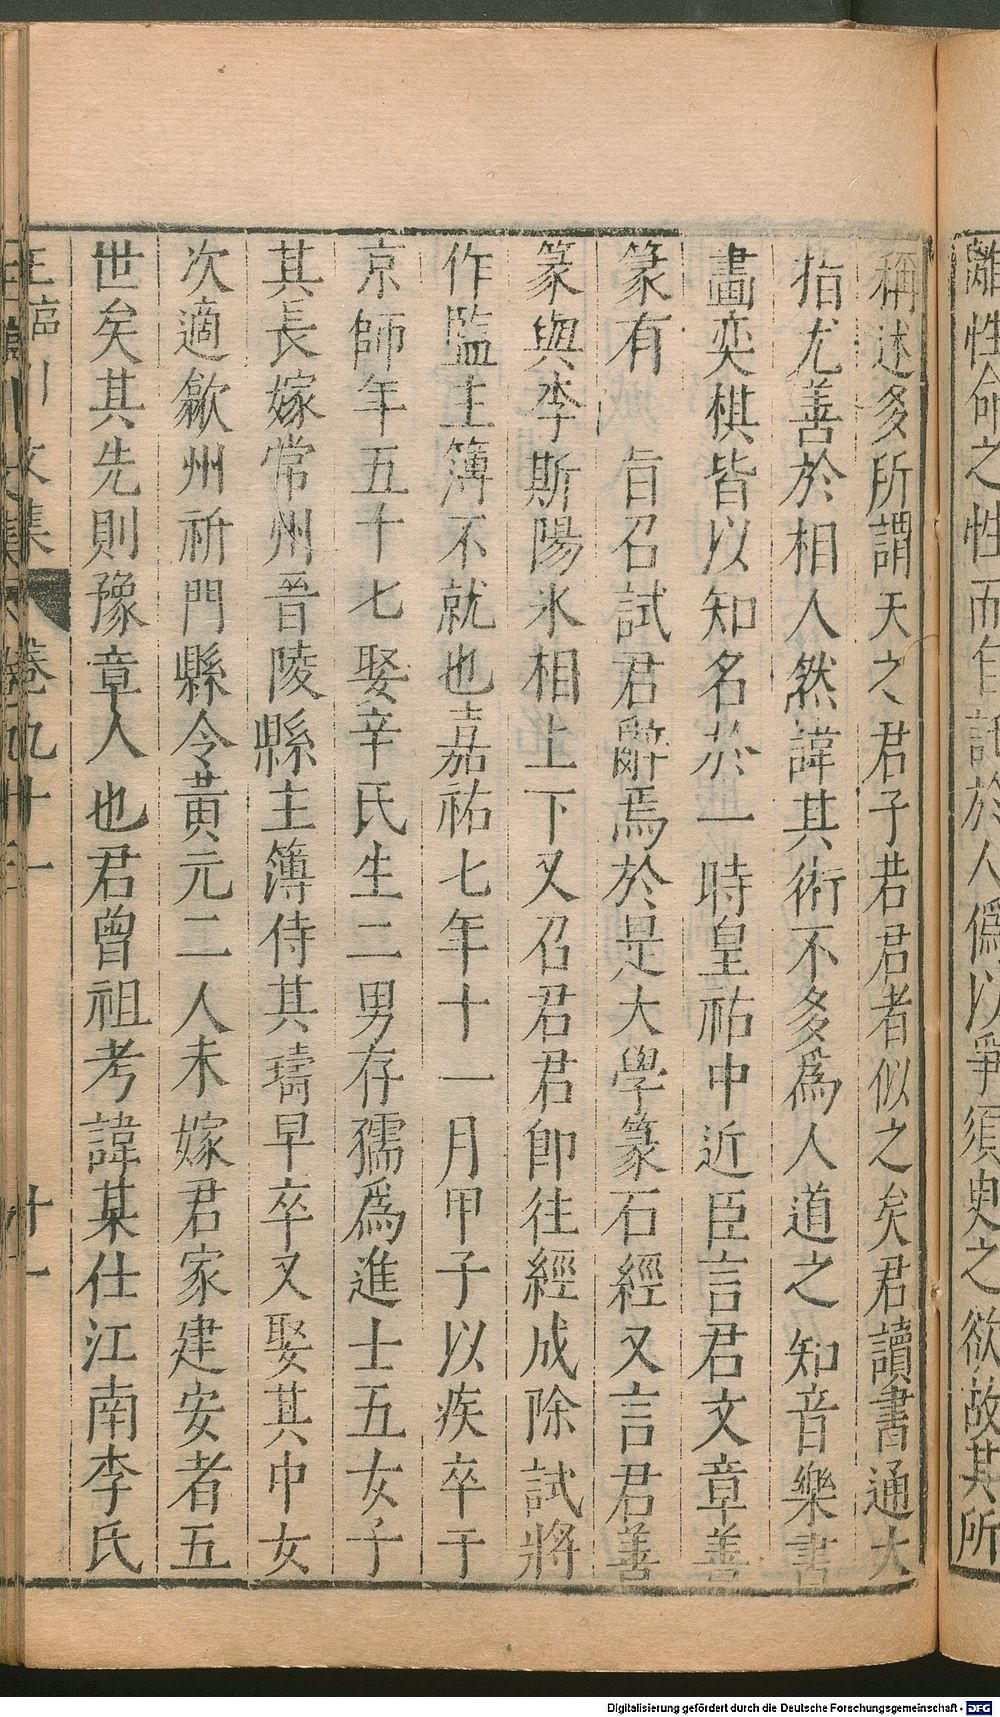 離性命之性而自託於人僞以爭須臾之欲故其所
稱述多所謂天之君子若君者似之矣君讀書通大
指尤善於相人然諱其術不多爲人道之知音樂書
畫奕棋皆以知名於一時皇祐中近臣言君文章善
篆有　旨召試君辭焉於是大學篆石經又言君善
篆與李斯陽氷相上下又召君君卽往經成除試將
作監主簿不就也嘉祐七年十一月甲子以疾卒于
京師年五十七娶辛氏生二男存孺爲進士五女子
其長嫁常州晉陵縣主簿侍其璹早卒又娶其中女
次適歙州祈門縣令黃元二人未嫁君家建安者五
世矣其先則豫章人也君曾祖考諱某仕江南李氏
王臨川文集 卷九十一 廿一
Digitalisierung gefördert durch die Deutsche Forschungsgemeinschaft - DFG